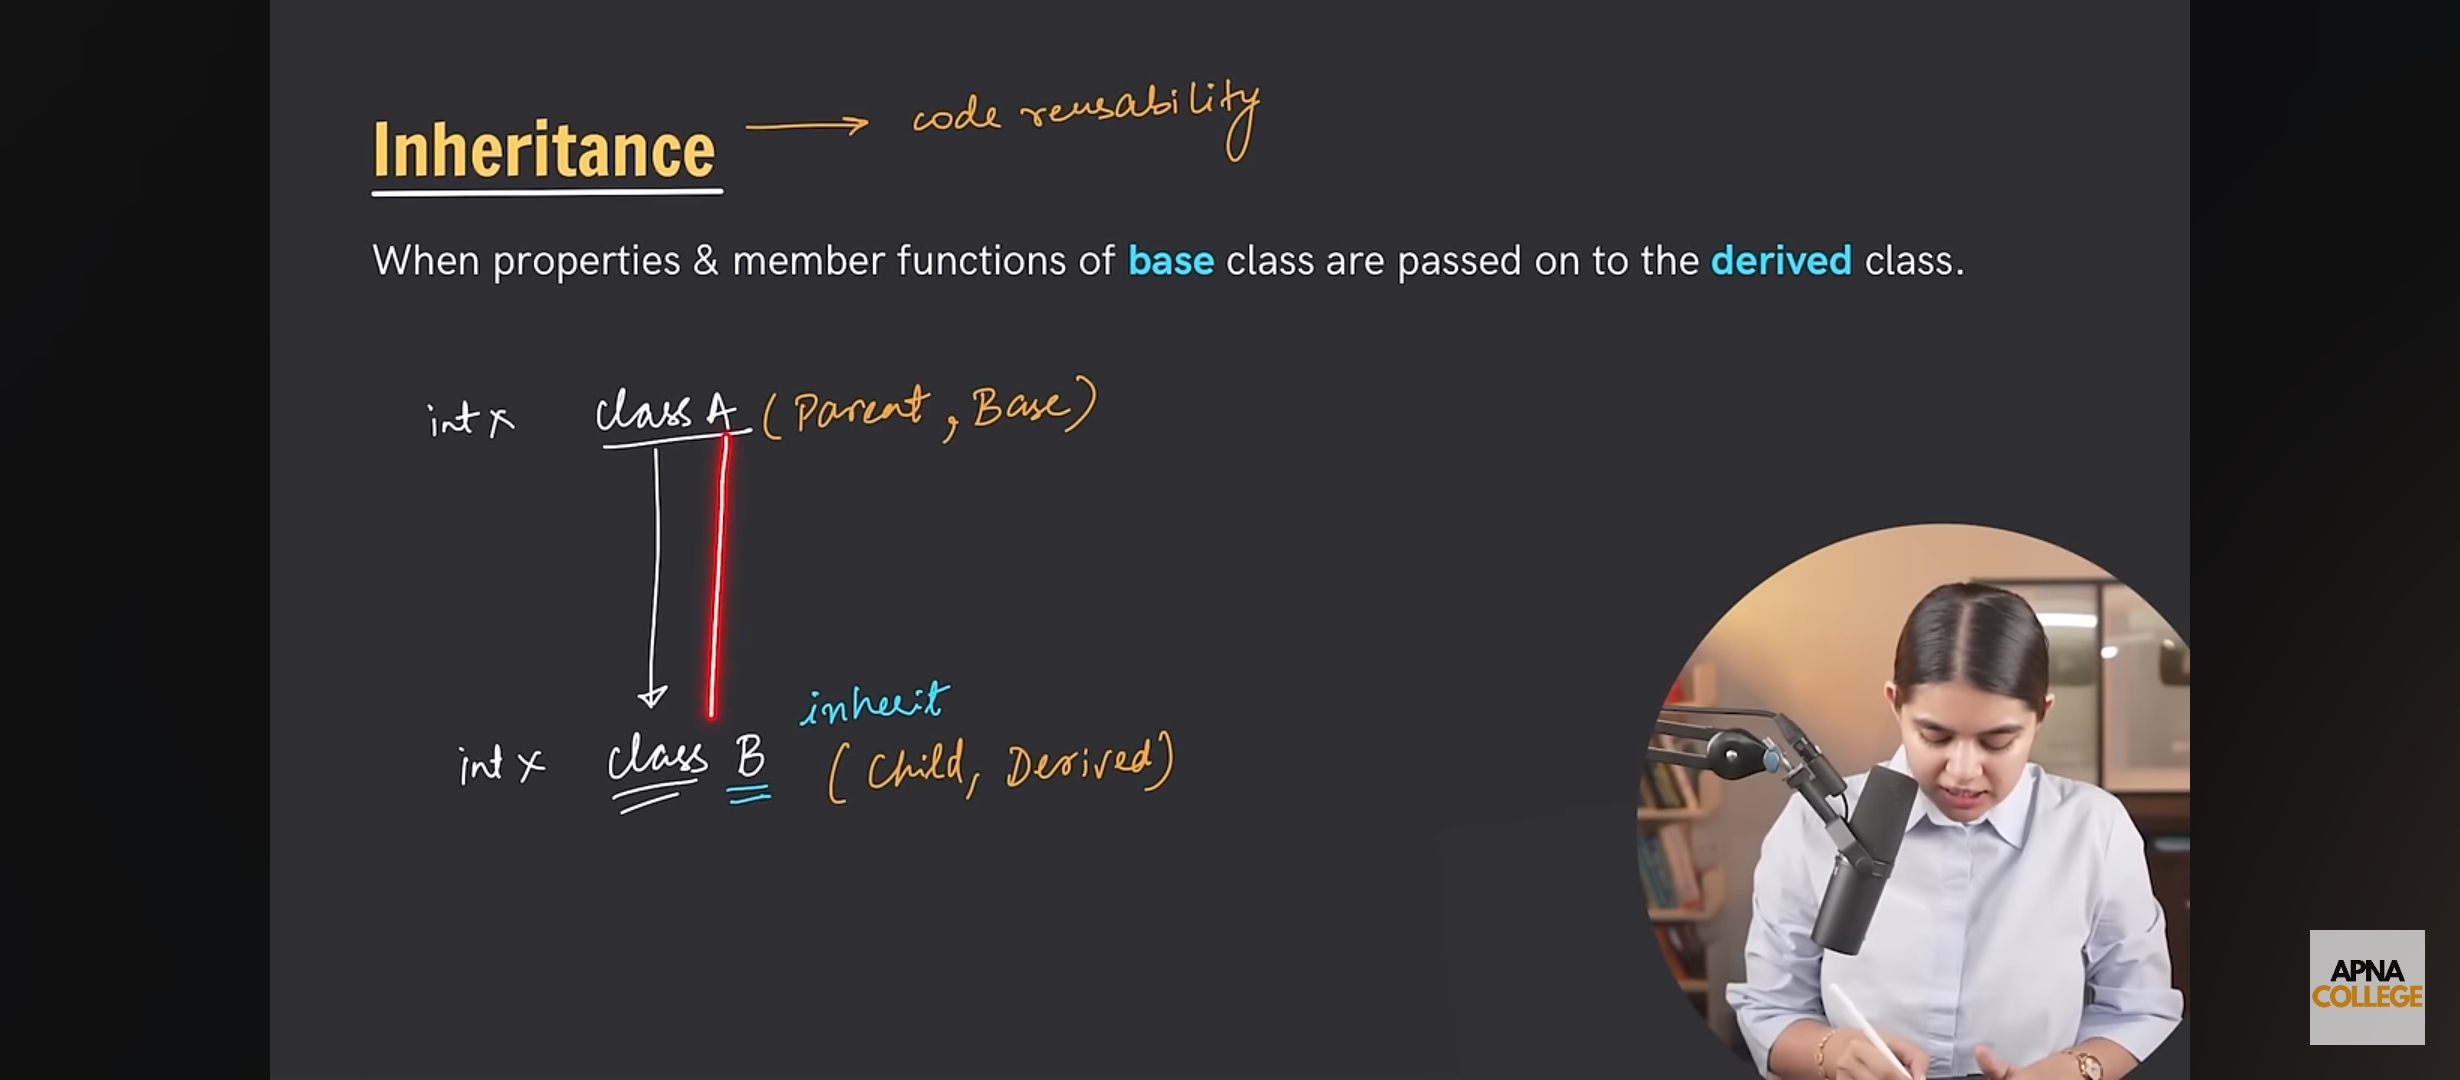 Inheritance → code reusability
When properties & member functions of base class are passed on to the derived class.
int x class A (Parent, Base)
inherit
int x class B (Child, Derived)
APNA
COLLEGE